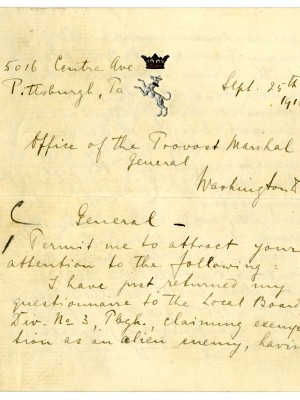 5016 Centre Ave
Pittsburgh, Pa
Sept. 25th
191
Office of the Provost Marshal
General
Washington
General —
Permit me to attract your
attention to the following:
I have just returned my
questionnaire to the Local Board
Div. No 3, Pbgh., claiming exemp-
tion as an alien enemy, havin